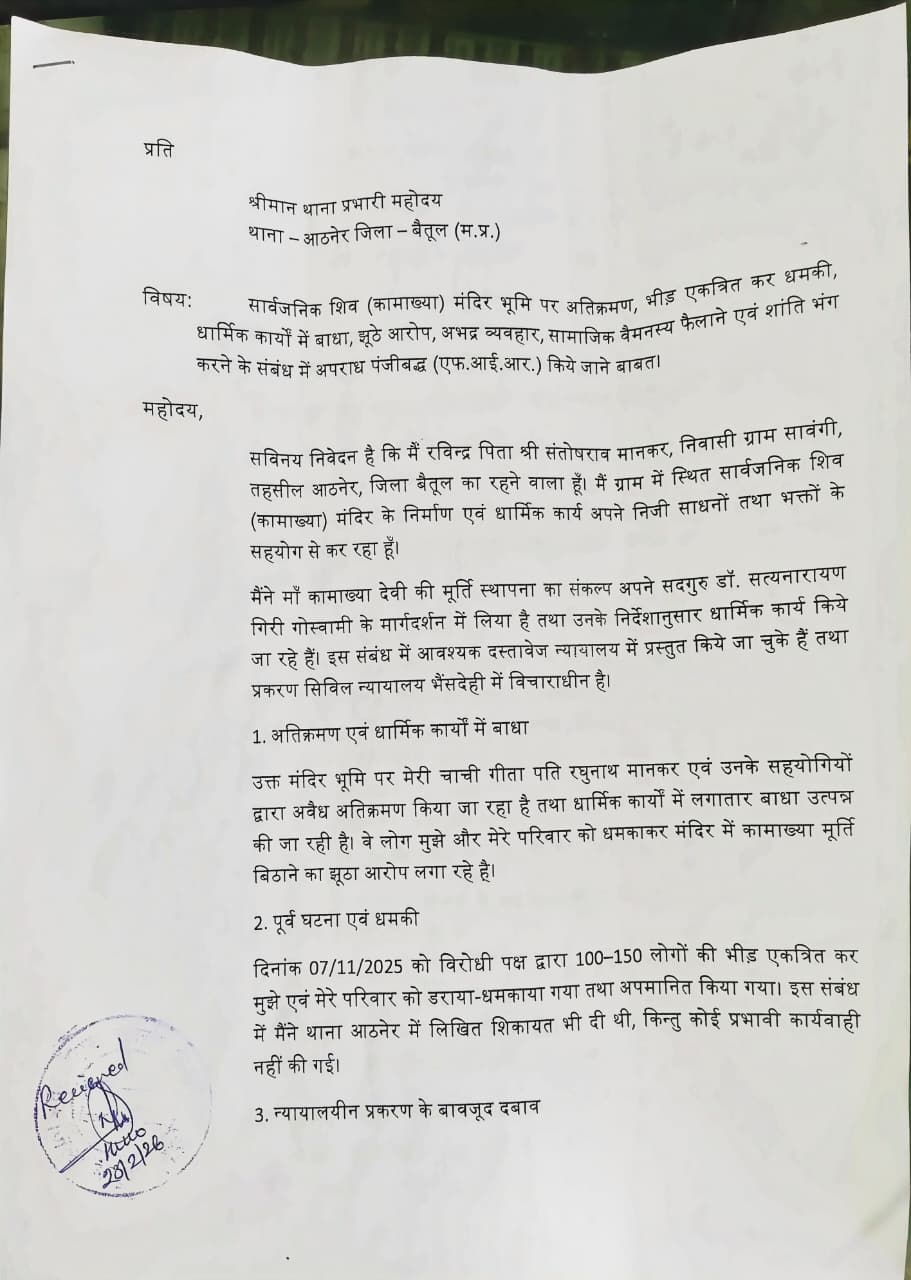 प्रति
श्रीमान थाना प्रभारी महोदय
थाना – आठनेर जिला – बैतूल (म.प्र.)
विषय: सार्वजनिक शिव (कामाख्या) मंदिर भूमि पर अतिक्रमण, भीड़ एकत्रित कर धमकी,
धार्मिक कार्यों में बाधा, झूठे आरोप, अभद्र व्यवहार, सामाजिक वैमनस्य फैलाने एवं शांति भंग
करने के संबंध में अपराध पंजीबद्ध (एफ.आई.आर.) किये जाने बाबत।
महोदय,
सविनय निवेदन है कि मैं रविन्द्र पिता श्री संतोषराव मानकर, निवासी ग्राम सावंगी,
तहसील आठनेर, जिला बैतूल का रहने वाला हूँ। मैं ग्राम में स्थित सार्वजनिक शिव
(कामाख्या) मंदिर के निर्माण एवं धार्मिक कार्य अपने निजी साधनों तथा भक्तों के
सहयोग से कर रहा हूँ।
मैंने माँ कामाख्या देवी की मूर्ति स्थापना का संकल्प अपने सदगुरु डॉ. सत्यनारायण
गिरी गोस्वामी के मार्गदर्शन में लिया है तथा उनके निर्देशानुसार धार्मिक कार्य किये
जा रहे हैं। इस संबंध में आवश्यक दस्तावेज न्यायालय में प्रस्तुत किये जा चुके हैं तथा
प्रकरण सिविल न्यायालय भैंसदेही में विचाराधीन है।
1. अतिक्रमण एवं धार्मिक कार्यों में बाधा
उक्त मंदिर भूमि पर मेरी चाची गीता पति रघुनाथ मानकर एवं उनके सहयोगियों
द्वारा अवैध अतिक्रमण किया जा रहा है तथा धार्मिक कार्यों में लगातार बाधा उत्पन्न
की जा रही है। वे लोग मुझे और मेरे परिवार को धमकाकर मंदिर में कामाख्या मूर्ति
बिठाने का झूठा आरोप लगा रहे है।
2. पूर्व घटना एवं धमकी
दिनांक 07/11/2025 को विरोधी पक्ष द्वारा 100–150 लोगों की भीड़ एकत्रित कर
मुझे एवं मेरे परिवार को डराया-धमकाया गया तथा अपमानित किया गया। इस संबंध
में मैंने थाना आठनेर में लिखित शिकायत भी दी थी, किन्तु कोई प्रभावी कार्यवाही
नहीं की गई।
3. न्यायालयीन प्रकरण के बावजूद दबाव
Received